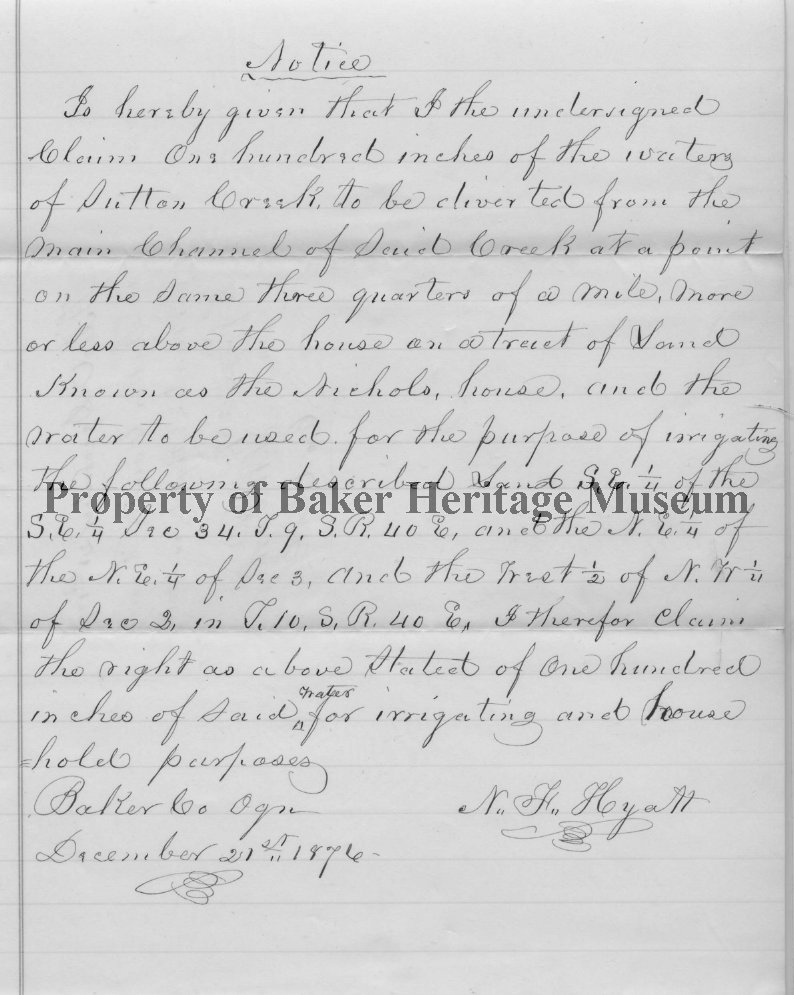 Notice
Is hereby given that I the undersigned
Claim One hundred inches of the waters
of Sutton Creek, to be diverted from the
main Channel of Said Creek at a point
on the Same three quarters of a mile, more
or less above the house on a tract of Land
Known as the Nichols, house, and the
water to be used for the purpose of irrigating
the following described Land S.E. 1/4 of the
Property of Baker Heritage Museum
S.E. 1/4 Sec 34. T. 9, S. R. 40 E, and the N. E. 1/4 of
the N. E. 1/4 of Sec 3, and the West 1/2 of N. W 1/4
of Sec 2, in T. 10, S. R. 40 E, I therefor Claim
the right as above Stated of One hundred
inches of Said water for irrigating and house
=hold purposes
Baker Co Ogn N. F. Hyatt
December 21st 1876